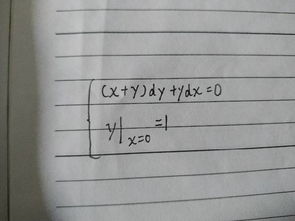 (x+y)dy+ydx=0
y|x=0=1